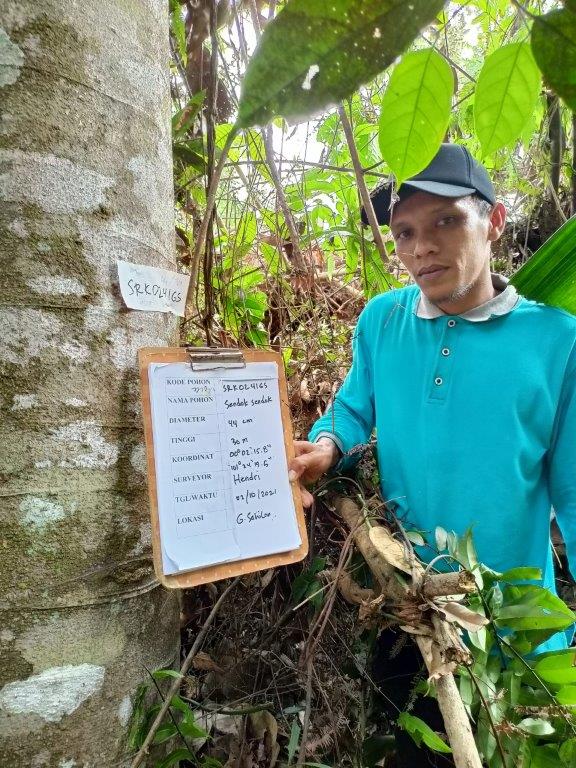 SRK0241GS
KODE POHON SRK0241GS
NAMA POHON Sendok sendok
DIAMETER 44 cm
TINGGI 30 m
KOORDINAT 00°02'15.8"
101°24'19.6"
SURVEYOR Hendri
TGL/WAKTU 02/10/2021
LOKASI G. Sahilan